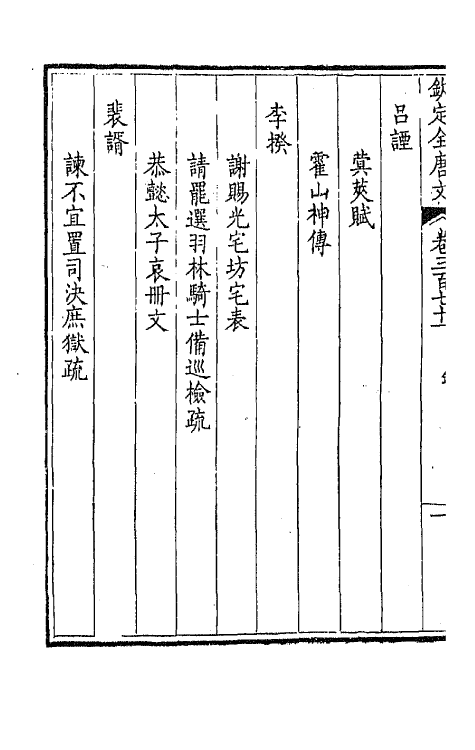 欽定全唐文卷三百七十一
一
呂諲
蓂莢賦
霍山神傳
李揆
謝賜光宅坊宅表
請罷選羽林騎士備巡檢疏
恭懿太子哀冊文
裴諝
諫不宜置司決庶獄疏